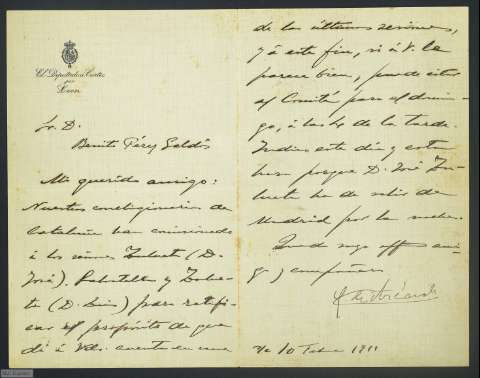 El Diputado a Cortes
por
León
Sr. D.
Benito Pérez Galdós
Mi querido amigo:
Nuestros correligionarios de
Cataluña han comisionado
á los señores Zulueta (D.
José), y Zulue-
ta (D. Luis) para ratifi-
car el propósito de que
di á Vd. cuenta en una
de las últimas sesiones,
y á este fin, si á V. le
parece bien, puede citar
al Comité para el domin-
go, á las 4 de la tarde.
Indico este día y esta
hora porque D. José Zu-
lueta ha de salir de
Madrid por la noche.
Queda suyo affmo ami-
go y compañero
G. de Azcárate
10 Febro 1911